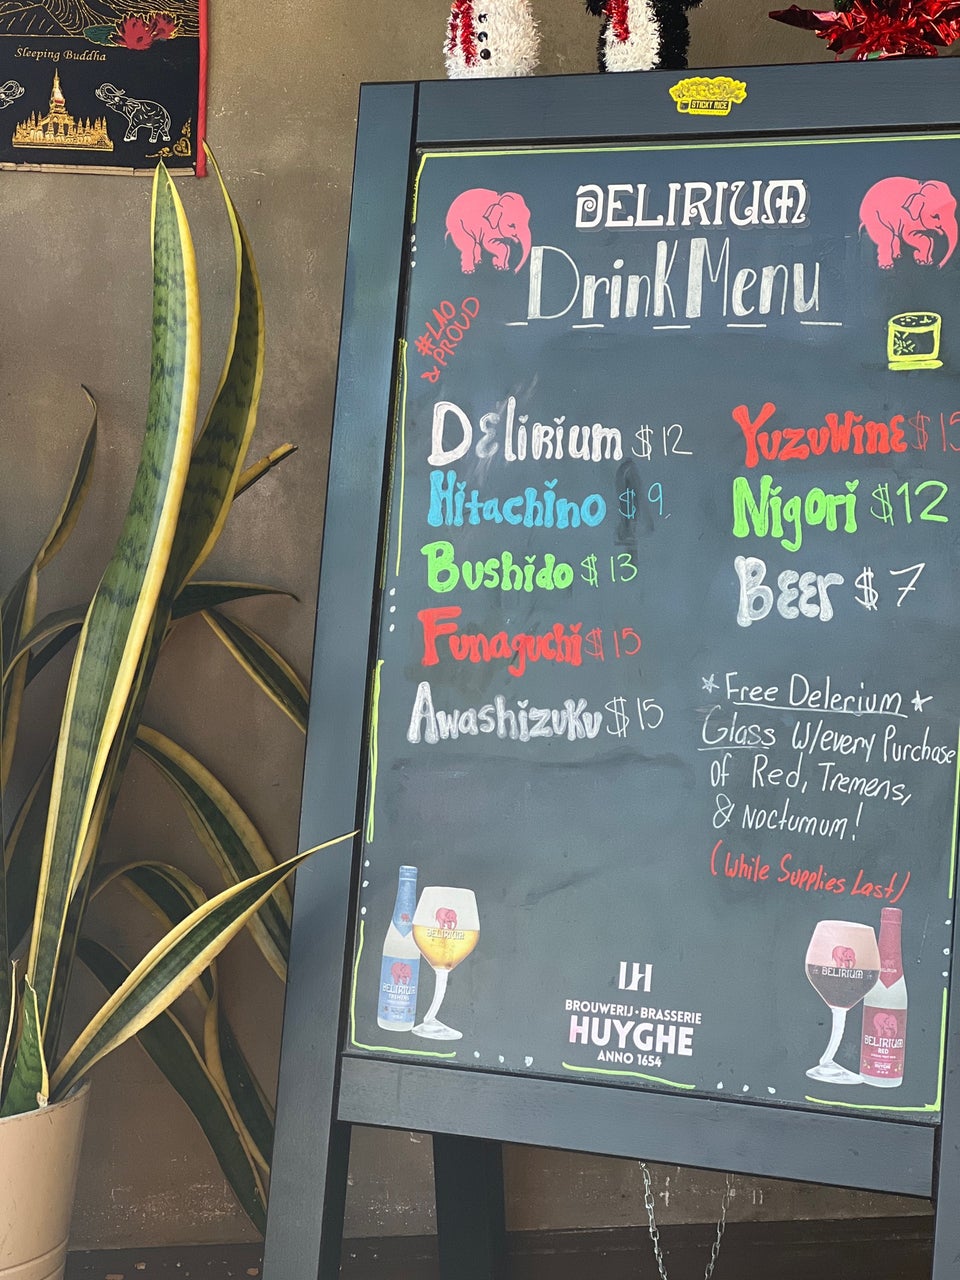 Sleeping Buddha
STICKY RICE
DELIRIUM
Drink Menu
#LAO
& PROUD
Delirium $12
Hitachino $9.
Bushido $13
Funaguchi $15
Awashizuku $15
YuzuWine $15
Nigori $12
Beer $7
*Free Delerium*
Glass W/every Purchase
Of Red, Tremens,
& Noctumum!
(While Supplies Last)
DELIRIUM
TREMENS
DELIRIUM
LH
BROUWERIJ · BRASSERIE
HUYGHE
ANNO 1654
DELIRIUM
DELIRIUM
RED
HUYGHE